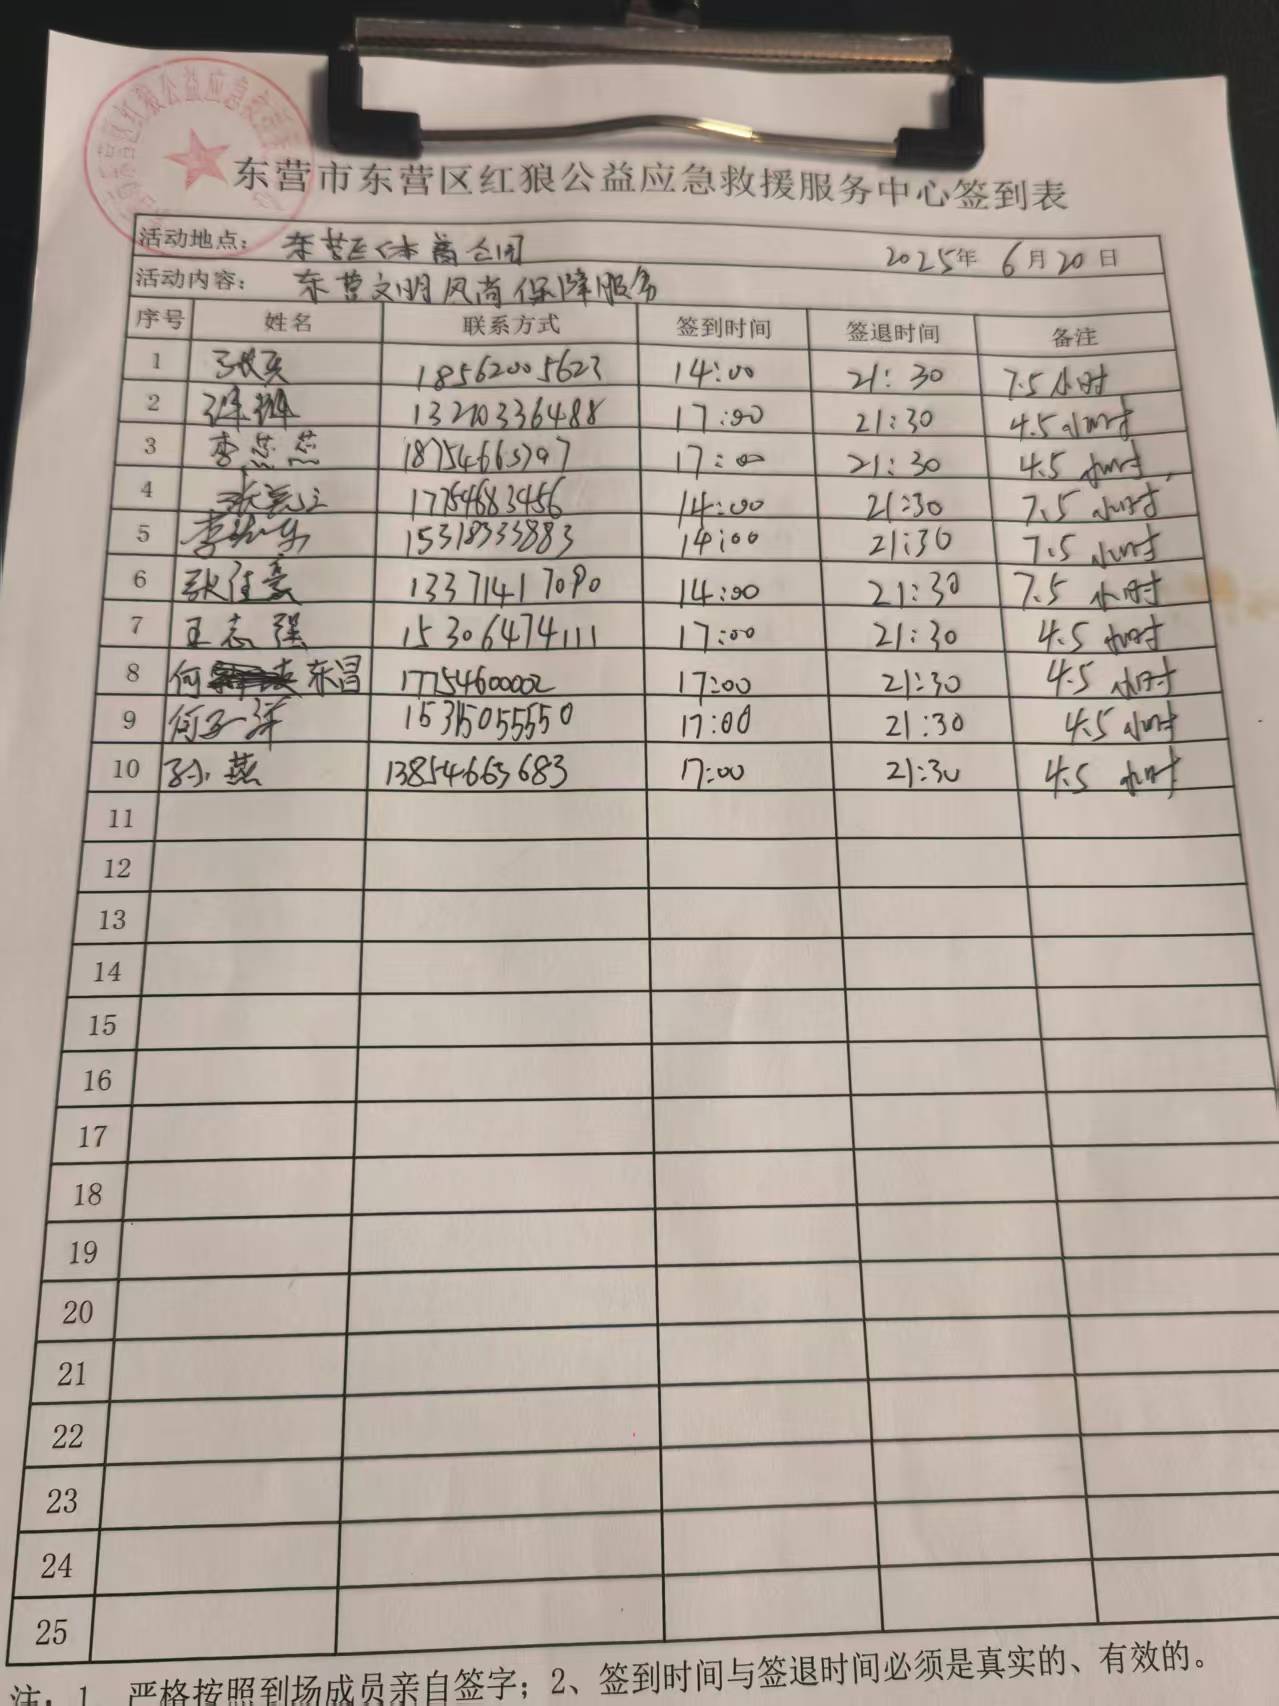 东营市东营区红狼公益应急救援服务中心签到表
活动地点： 东营区 2025年 6月20日
活动内容： 东营文明风尚保障服务
序号 姓名 联系方式 签到时间 签退时间 备注
1 18562005623 14:00 21:30 7.5小时
2 13210336488 17:00 21:30 4.5小时
3 李蕊蕊 17:00 21:30 4.5小时
4 17754683456 14:00 21:30 7.5小时
5 15318333883 14:00 21:30 7.5小时
6 耿佳豪 13371417090 14:00 21:30 7.5小时
7 王志强 15306474111 17:00 21:30 4.5小时
8 何东昌 17754600002 17:00 21:30 4.5小时
9 17:00 21:30 4.5小时
10 孙燕 13854663683 17:00 21:30 4.5小时
11
12
13
14
15
16
17
18
19
20
21
22
23
24
25
注：1、严格按照到场成员亲自签字；2、签到时间与签退时间必须是真实的、有效的。